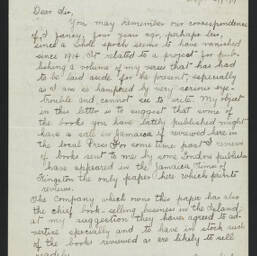 Dear Sir,
You may remember our correspondence
of, I fancy, four years ago, perhaps less,
since a whole epoch seems to have vanished
since 1914. It related to a project for pub-
lishing a volume of my verse that has had
to be laid aside for the present, especially
as I am so hampered by very serious eye-
trouble and cannot see to write. My object
in this letter is to suggest that some of
the books you have lately published might
have a sale in Jamaica if reviewed here in
the local Press. For some time past reviews
of books sent to me by some London publishers
have appeared in the Jamaica Times of
Kingston the only paper here which prints
reviews.
The company which owns this paper has also
the chief book-selling business in the Island,
at my suggestion they have agreed to ad-
vertise specially and to have in stock such
of the books reviewed as are likely to sell
readily.